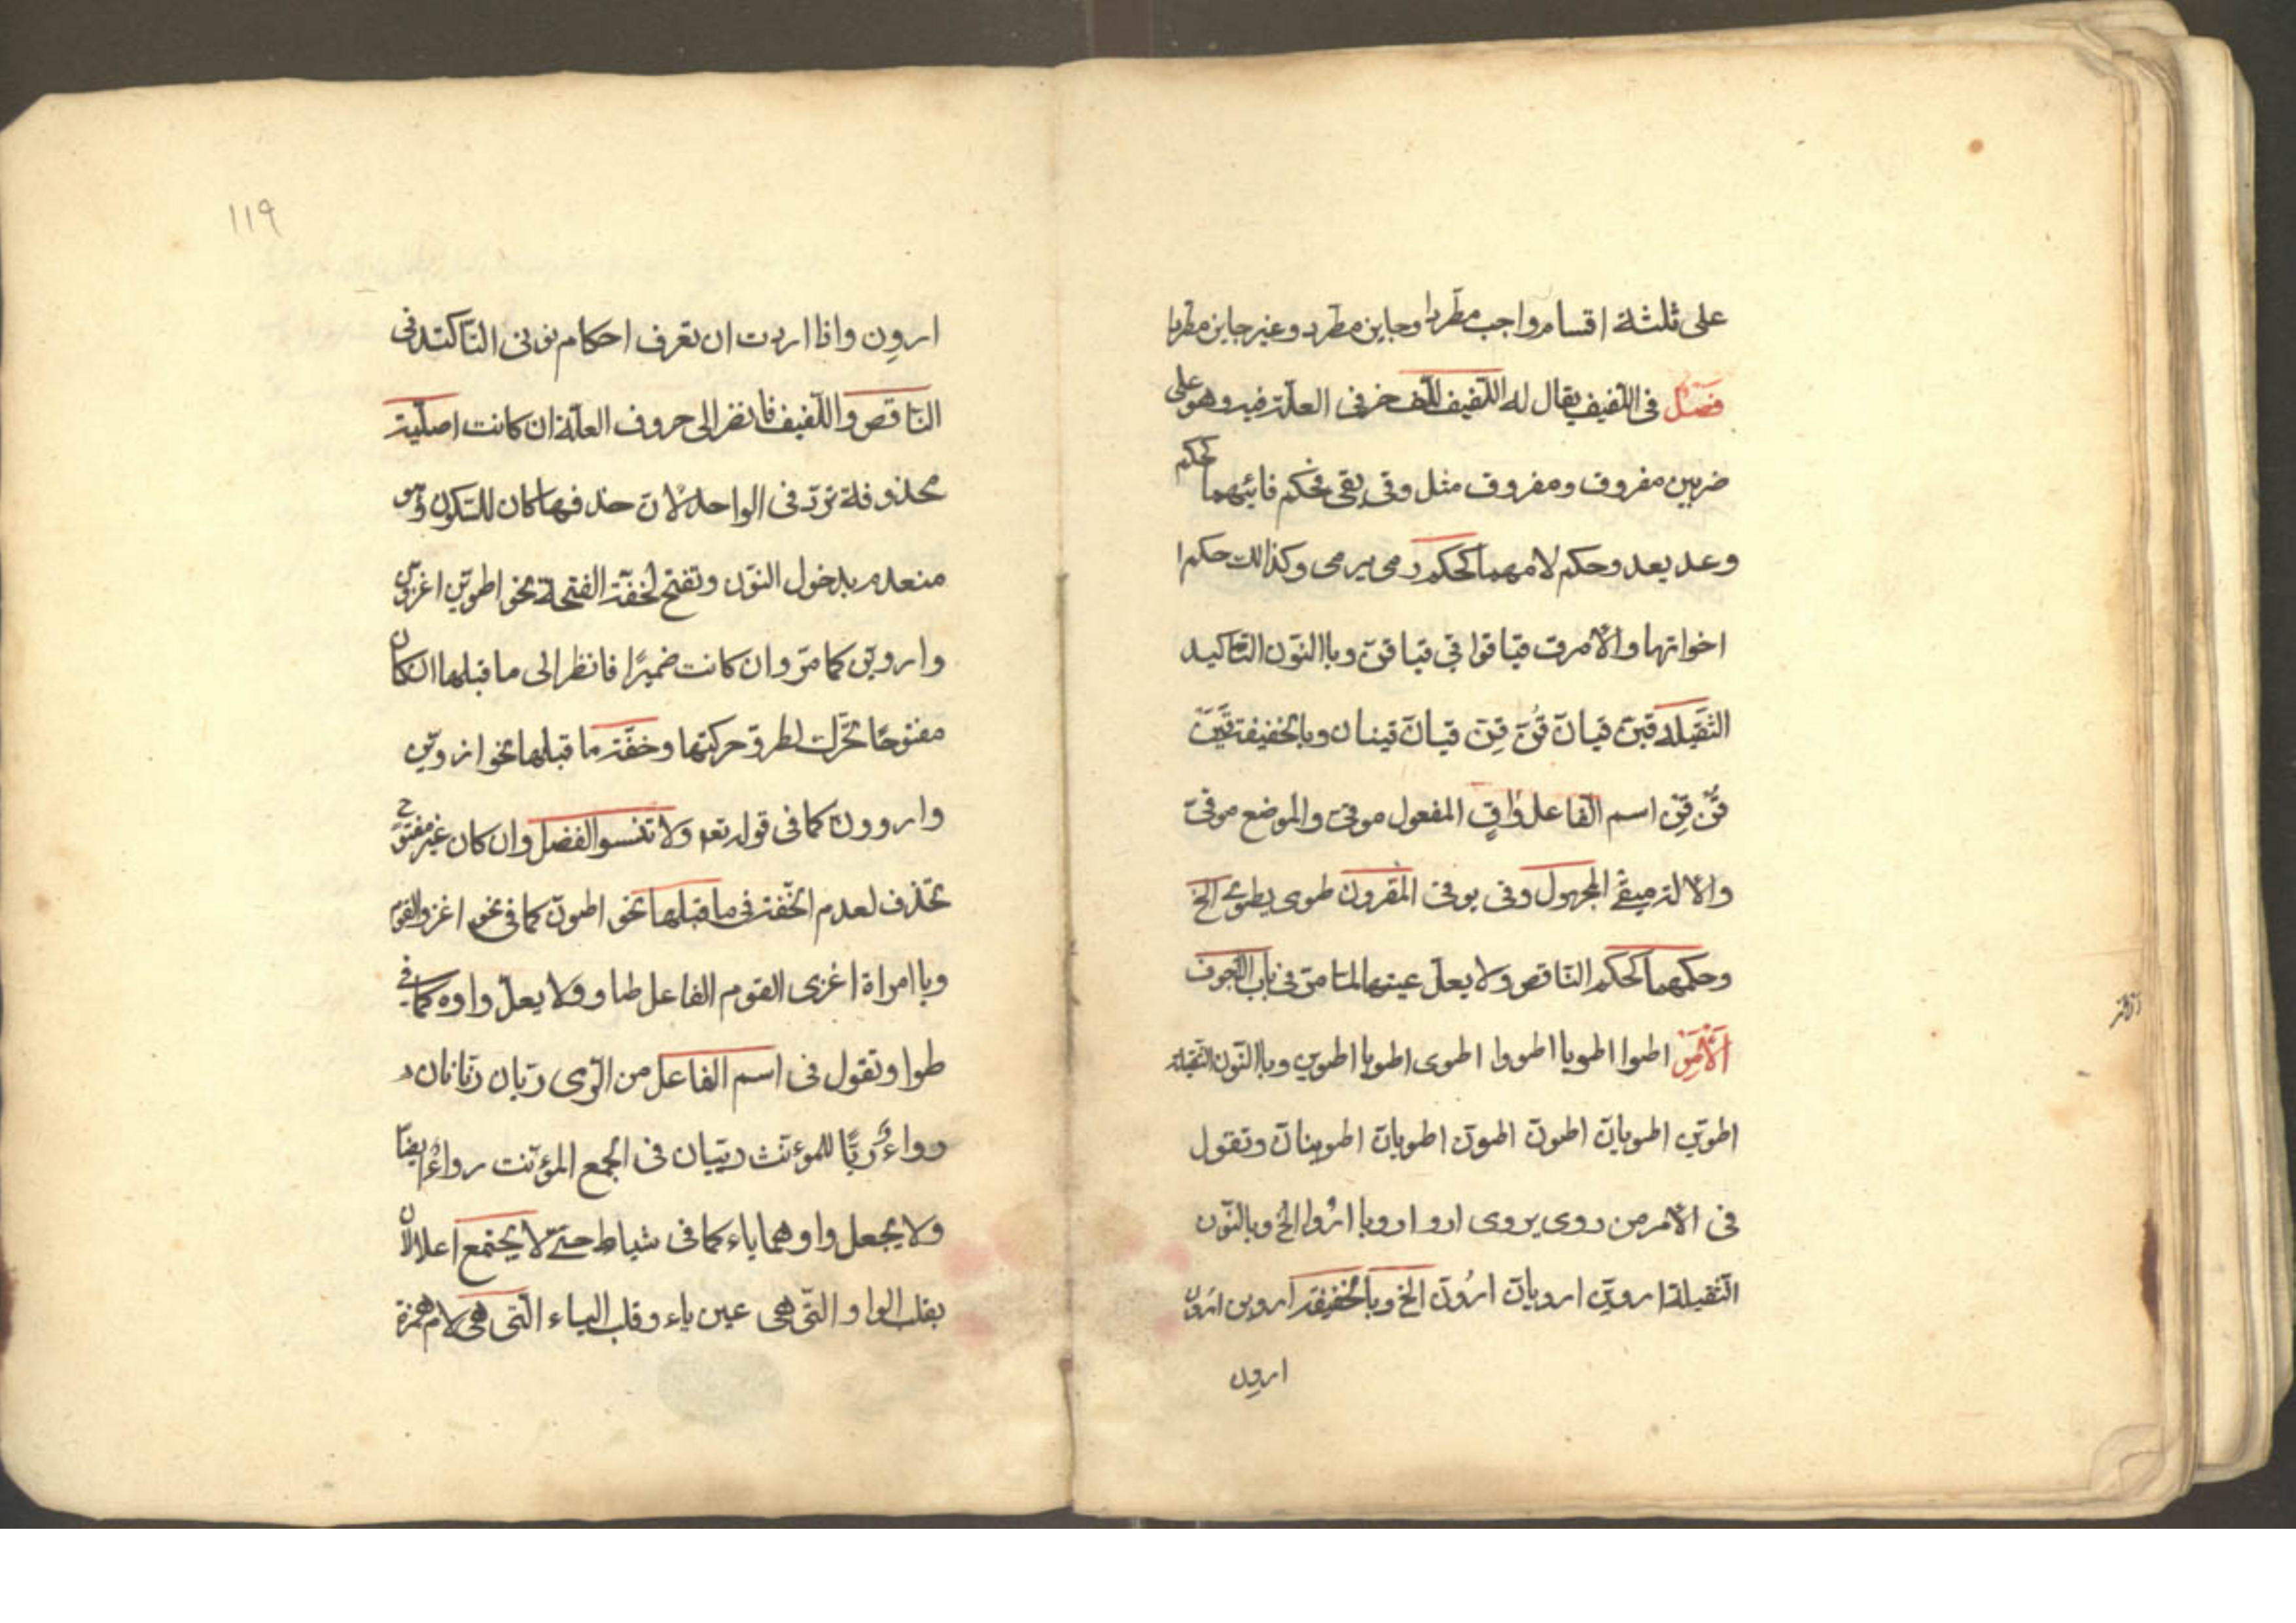 على ثلثة اقسام واجب مطرد وجايز مطرد وغير جايز مطرد
فصل في اللفيف يقال له اللفيف للف حرفى العلة فيه وهو على
ضربين مفروق ومفروق مثل وقى يقى فحكم فائيهما كحكم
وعد يعد وحكم لامهما كحكم رمى يرمى وكذالك حكم ا
اخواتها والامر ق قيا قوا قى قيا قين وباالنون التاكيد
الثقيله قين قيان قن قن قيان قينان وبالخفيفة قين
قن قن اسم الفاعل واق المفعول موقى والموضع موقى
والالة ميقى المجهول وقى يوقى المقرون طوى يطوى الخ
وحكمهما كحكم الناقص ولا يعل عينهما لما مر فى باب الاجوف
الامر اطوا اطويا اطووا اطوى اطويا اطوين وباالنون الثقيلة
اطوين اطويان اطون اطون اطويان اطوينان وتقول
فى الامر من روى يروى ارو ارويا ارووا الخ وبالنون
الثقيلة اروين ارويان ارون الخ وبالخفيفة اروين ارون
ارون
١١٩
ارون واذا اردت ان تعرف احكام نونى التاكيد فى
الناقص واللفيف فانظر الى حروف العلة ان كانت اصلية
محذوفة ترد فى الواحد لان حذفها كان للسكون وهو
منعدم بدخول النون وتفتح لخفة الفتحة نحو اطوين اغزون
واروين كما مر وان كانت ضميرا فانظر الى ما قبلها ان كان
مفتوحا تحرك لطرو حركتها وخفة ما قبلها نحو اروين
واروون كما فى قوله تعم ولا تنسوا الفضل وان كان غير مفتوح
تحذف لعدم الخفة فى ما قبلها نحو اطون كما فى نحو اغزوا القوم
ويا امراة اغزى القوم الفاعل طاو ولا يعل واوه كما فى
طوا وتقول فى اسم الفاعل من الرى ريان ريانان
رواء ريا للموءنث رييان فى الجمع المؤنث رواء ايضا
ولا يجعل واوهما ياء كما فى سياط حتى لا يجتمع اعلالان
بقلب الواو التى هى عين ياء وقلب الياء التى هى لام همزة